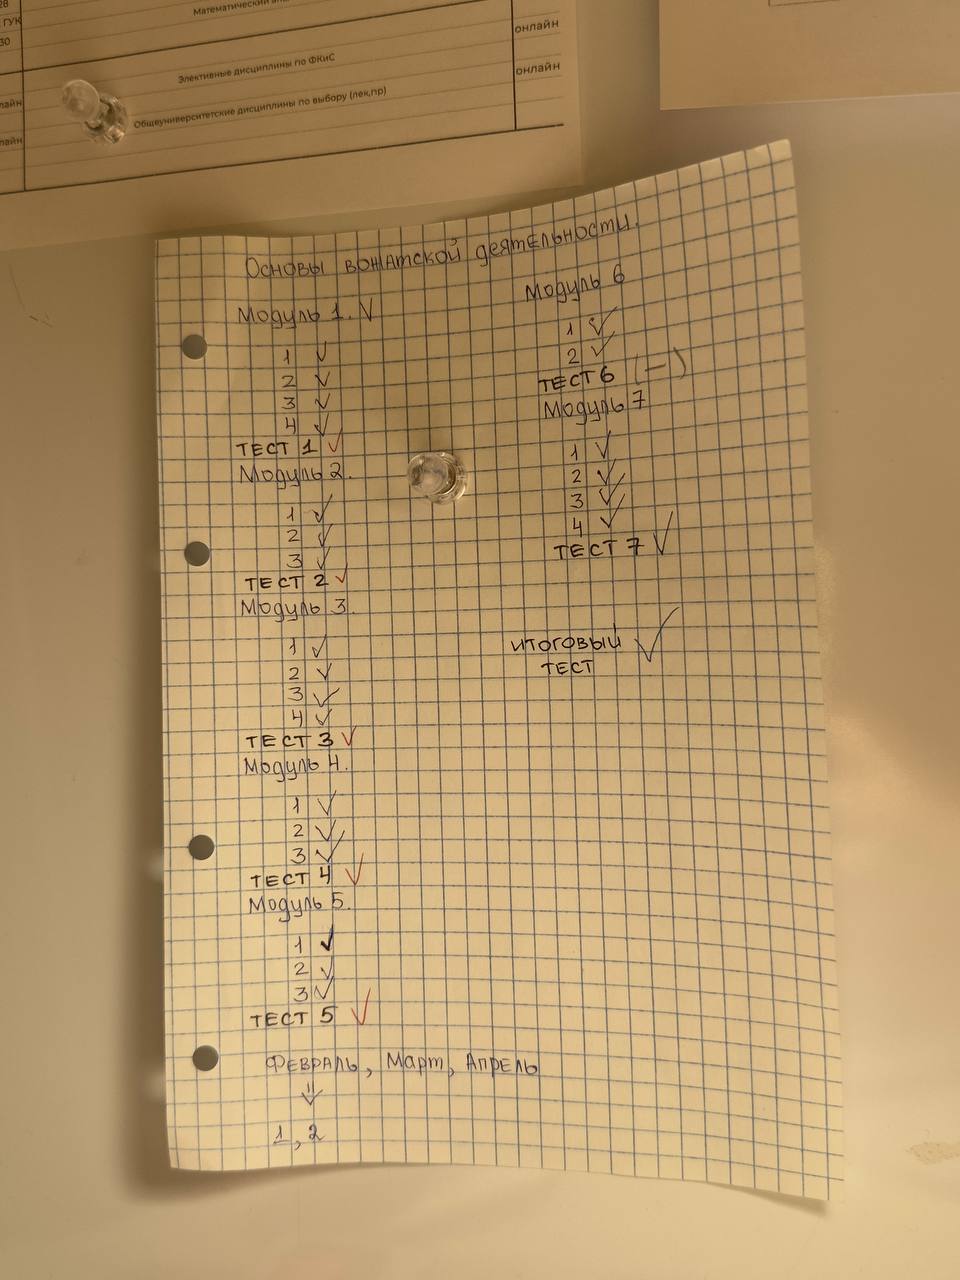 28
ГУК
30
Математический
онлайн
Элективные дисциплины по ФКиС
онлайн
Общеуниверситетские дисциплины по выбору (лек,пр)
Основы вожатской деятельности.
Модуль 1. ✓
1 ✓
2 ✓
3 ✓
4 ✓
ТЕСТ 1 ✓
Модуль 2.
1 ✓
2 ✓
3 ✓
ТЕСТ 2 ✓
Модуль 3.
1 ✓
2 ✓
3 ✓
4 ✓
ТЕСТ 3 ✓
Модуль 4.
1 ✓
2 ✓
3 ✓
ТЕСТ 4 ✓
Модуль 5.
1 ✓
2 ✓
3 ✓
ТЕСТ 5 ✓
Февраль, Март, Апрель
⇓
1, 2
Модуль 6
1 ✓
2 ✓
ТЕСТ 6 (—)
Модуль 7
1 ✓
2 ✓
3 ✓
4 ✓
ТЕСТ 7 ✓
итоговый ✓
тест